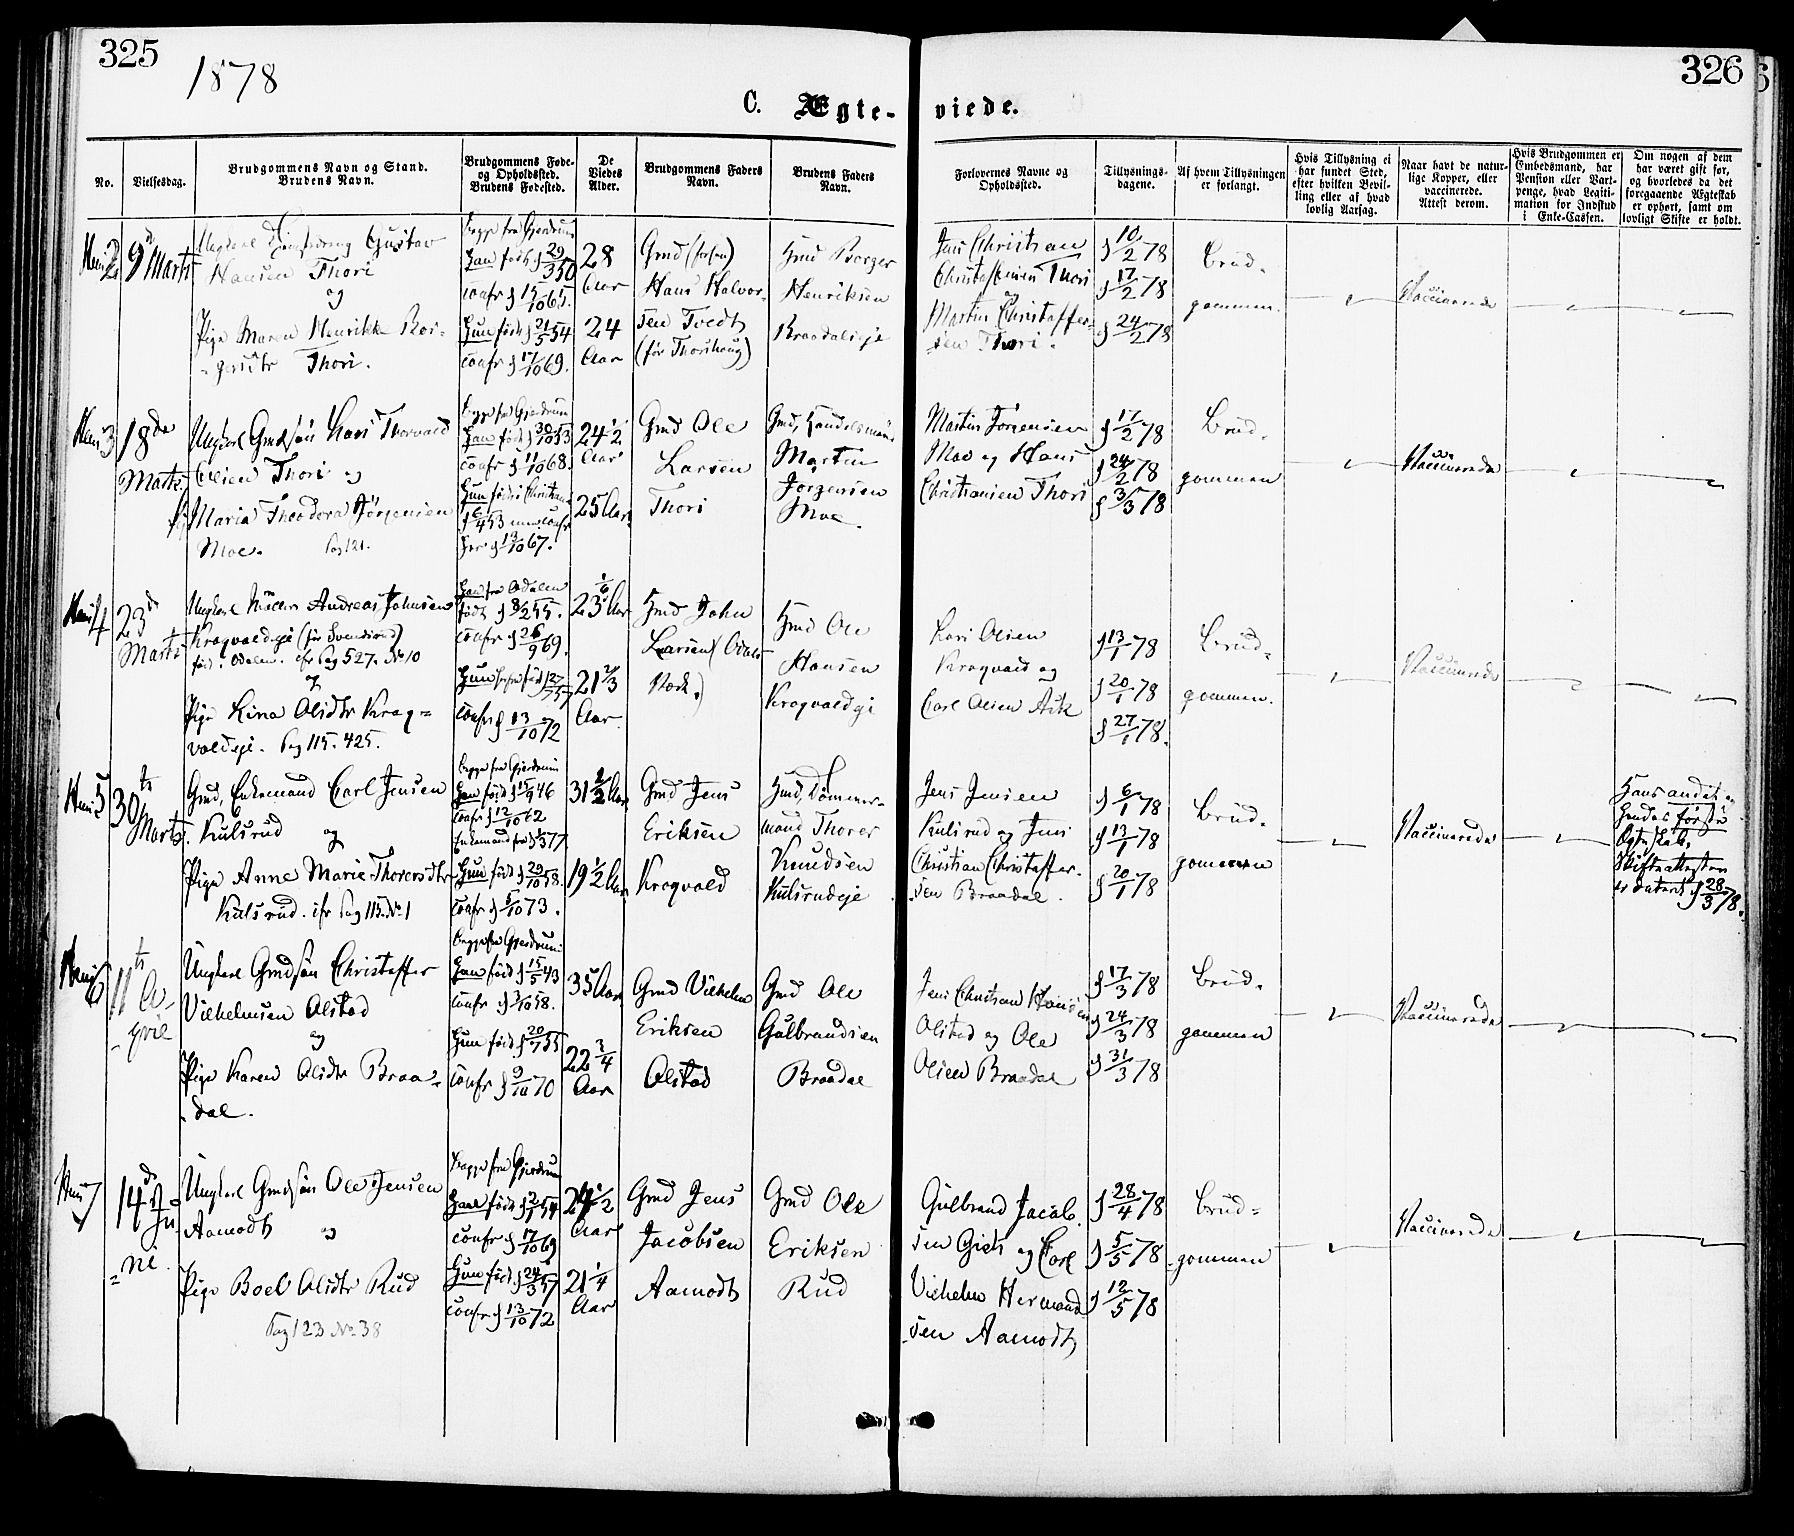 325
1878
C. Ægte-
viede.
326
No.
Vielsesdag.
Brudgommens Navn og Stand.
Brudens Navn.
Brudgommens Føde-
og Opholdssted.
Brudens Fødested.
De
Viedes
Alder.
Brudgommens Faders
Navn.
Brudens Faders
Navn.
Forlovernes Navne og
Opholdssted.
Tillysnings-
dagene.
Af hvem Tillysningen
er forlangt.
Hvis Tillysning ei
har fundet Sted,
efter hvilken Bevil-
ling eller af hvad
lovlig Aarsag.
Naar havt de natur-
lige Kopper, eller
vaccinerede.
Attest derom.
Hvis Brudgommen er
Embedsmand, har
Pension eller Vart-
penge, hvad Legiti-
mation for Indskud
i Enke-Cassen.
Om nogen af dem
har været gift før,
og hvorledes da det
foregaaende Ægteskab
er ophørt, samt om
lovligt Skifte er holdt.
2
9d Marts
Gustav
Hansen Thori
og
Pige Maren Henrikke Bor-
gersdtr Thori.
Begge fra Gjerdrum
Han født d 29/3 50
Confr d 15/10 65.
Hun født d 21/5 54
Confr d 17/10 69.
28
Aar
24
Aar
Gmd
Hans Halvor-
sen Tvedt
(før Thorshaug)
Hmd Borger
Henriksen
Braadaleje
Jens Christian
Christoffersen Thori
Martin Christoffer-
sen Thori.
d 10/2 78
d 17/2 78
d 24/2 78
Brud-
gommen.
Vaccinerede
3
18de
Marts
Ungkarl Gmdsøn Lars Thorvald
Olsen Thori og
Maria Theodora Jörgensen
Moe. Pag 121.
Begge fra Gjerdrum
Han født d 30/10 53
Confr d 11/10 68.
Hun født i Christiania
d 6/4 53 men Confr
her d 13/10 67.
24 1/2
Aar
25 Aar
Gmd Ole
Larsen
Thori
Gmd, Handelsmand
Martin
Jorgensen
Moe.
Martin Jorgensen
Moe og Hans
Christiansen Thori
d 17/2 78
d 24/2 78
d 3/3 78
Brud-
gommen
Vaccinerede
4
23d
Marts
Ungkarl Andreas Johnsen
Kragvaldeje
født i Odalen. cfr Pag 527. No 10
og
Pige Lina Olsdtr Krag-
valdeje. Pag 115. 425.
Han fra Odalen
født d 8/2 55.
Confr d 26/9 69.
Hun født 27/7 57
Confr d 13/10 72
23 1/6 Aar
21 2/3
Aar
Hmd John
Larsen
Hmd Ole
Hansen
Kragvaldeje
Lars Olsen
Kragvald og
Carl Olsen Ask
d 13/1 78
d 20/1 78
d 27/1 78.
Brud-
gommen.
Vaccinerede
5
30te
Marts
Gmd, Enkemand Carl Jensen
Kulsrud og
Pige Anne Marie Thorersdtr
Kulsrud. cfr Pag 115. No 1
Begge fra Gjerdrum
Han født d 15/9 46
Confr d 12/10 62
Hun født d 20/10 58.
Confr d 5/10 73.
31 1/2 Aar
19 1/2 Aar
Gmd Jens
Eriksen
Kragvald
Hmd, Tömmer-
mand Thorer
Knudsen
Kulsrudeje
Jens Jensen
Kulsrud og Jens
Christian Christoffer-
sen Braadal.
d 6/1 78
d 13/1 78
d 20/1 78
Brud-
gommen
Vaccinerede
Hans andet og
Hendes første
Ægteskab.
Skifteattesten
er dateret d 28/3 78.
6
11te A-
pril
Ungkarl Gmdsøn Christoffer
Vilhelmsen Olstad
og
Pige Karen Olsdtr Braa-
dal.
Begge fra Gjerdrum
Han født d 15/5 43
Confr d 3/10 58.
Hun født d 20/7 55
Confr d 9/10 70
35 Aar
22 3/4
Aar
Gmd Vilhelm
Eriksen
Olstad
Gmd Ole
Gulbrandsen
Braadal
Jens Christian Hansen
Olstad og Ole
Olsen Braadal
d 17/3 78
d 24/3 78
d 31/3 78
Brud-
gommen
Vaccinerede
7
14de Ju-
ni
Ungkarl Gmdsøn Ole Jensen
Aamodt og
Pige Boel Olsdtr Rud
Pag 123 No 38
Begge fra Gjerdrum
Han født d 2/1 54
Confr d 17/10 69
Hun født d 24/3 57
Confr d 13/10 72
24 1/2
Aar
21 1/4
Aar
Gmd Jens
Jacobsen
Aamodt
Gmd Ole
Eriksen
Rud
Gulbrand Jacob-
sen Gjets og Carl
Vilhelm Hermand-
sen Aamodt
d 28/4 78
d 5/5 78
d 12/5 78
Brud-
gommen
Vaccinerede